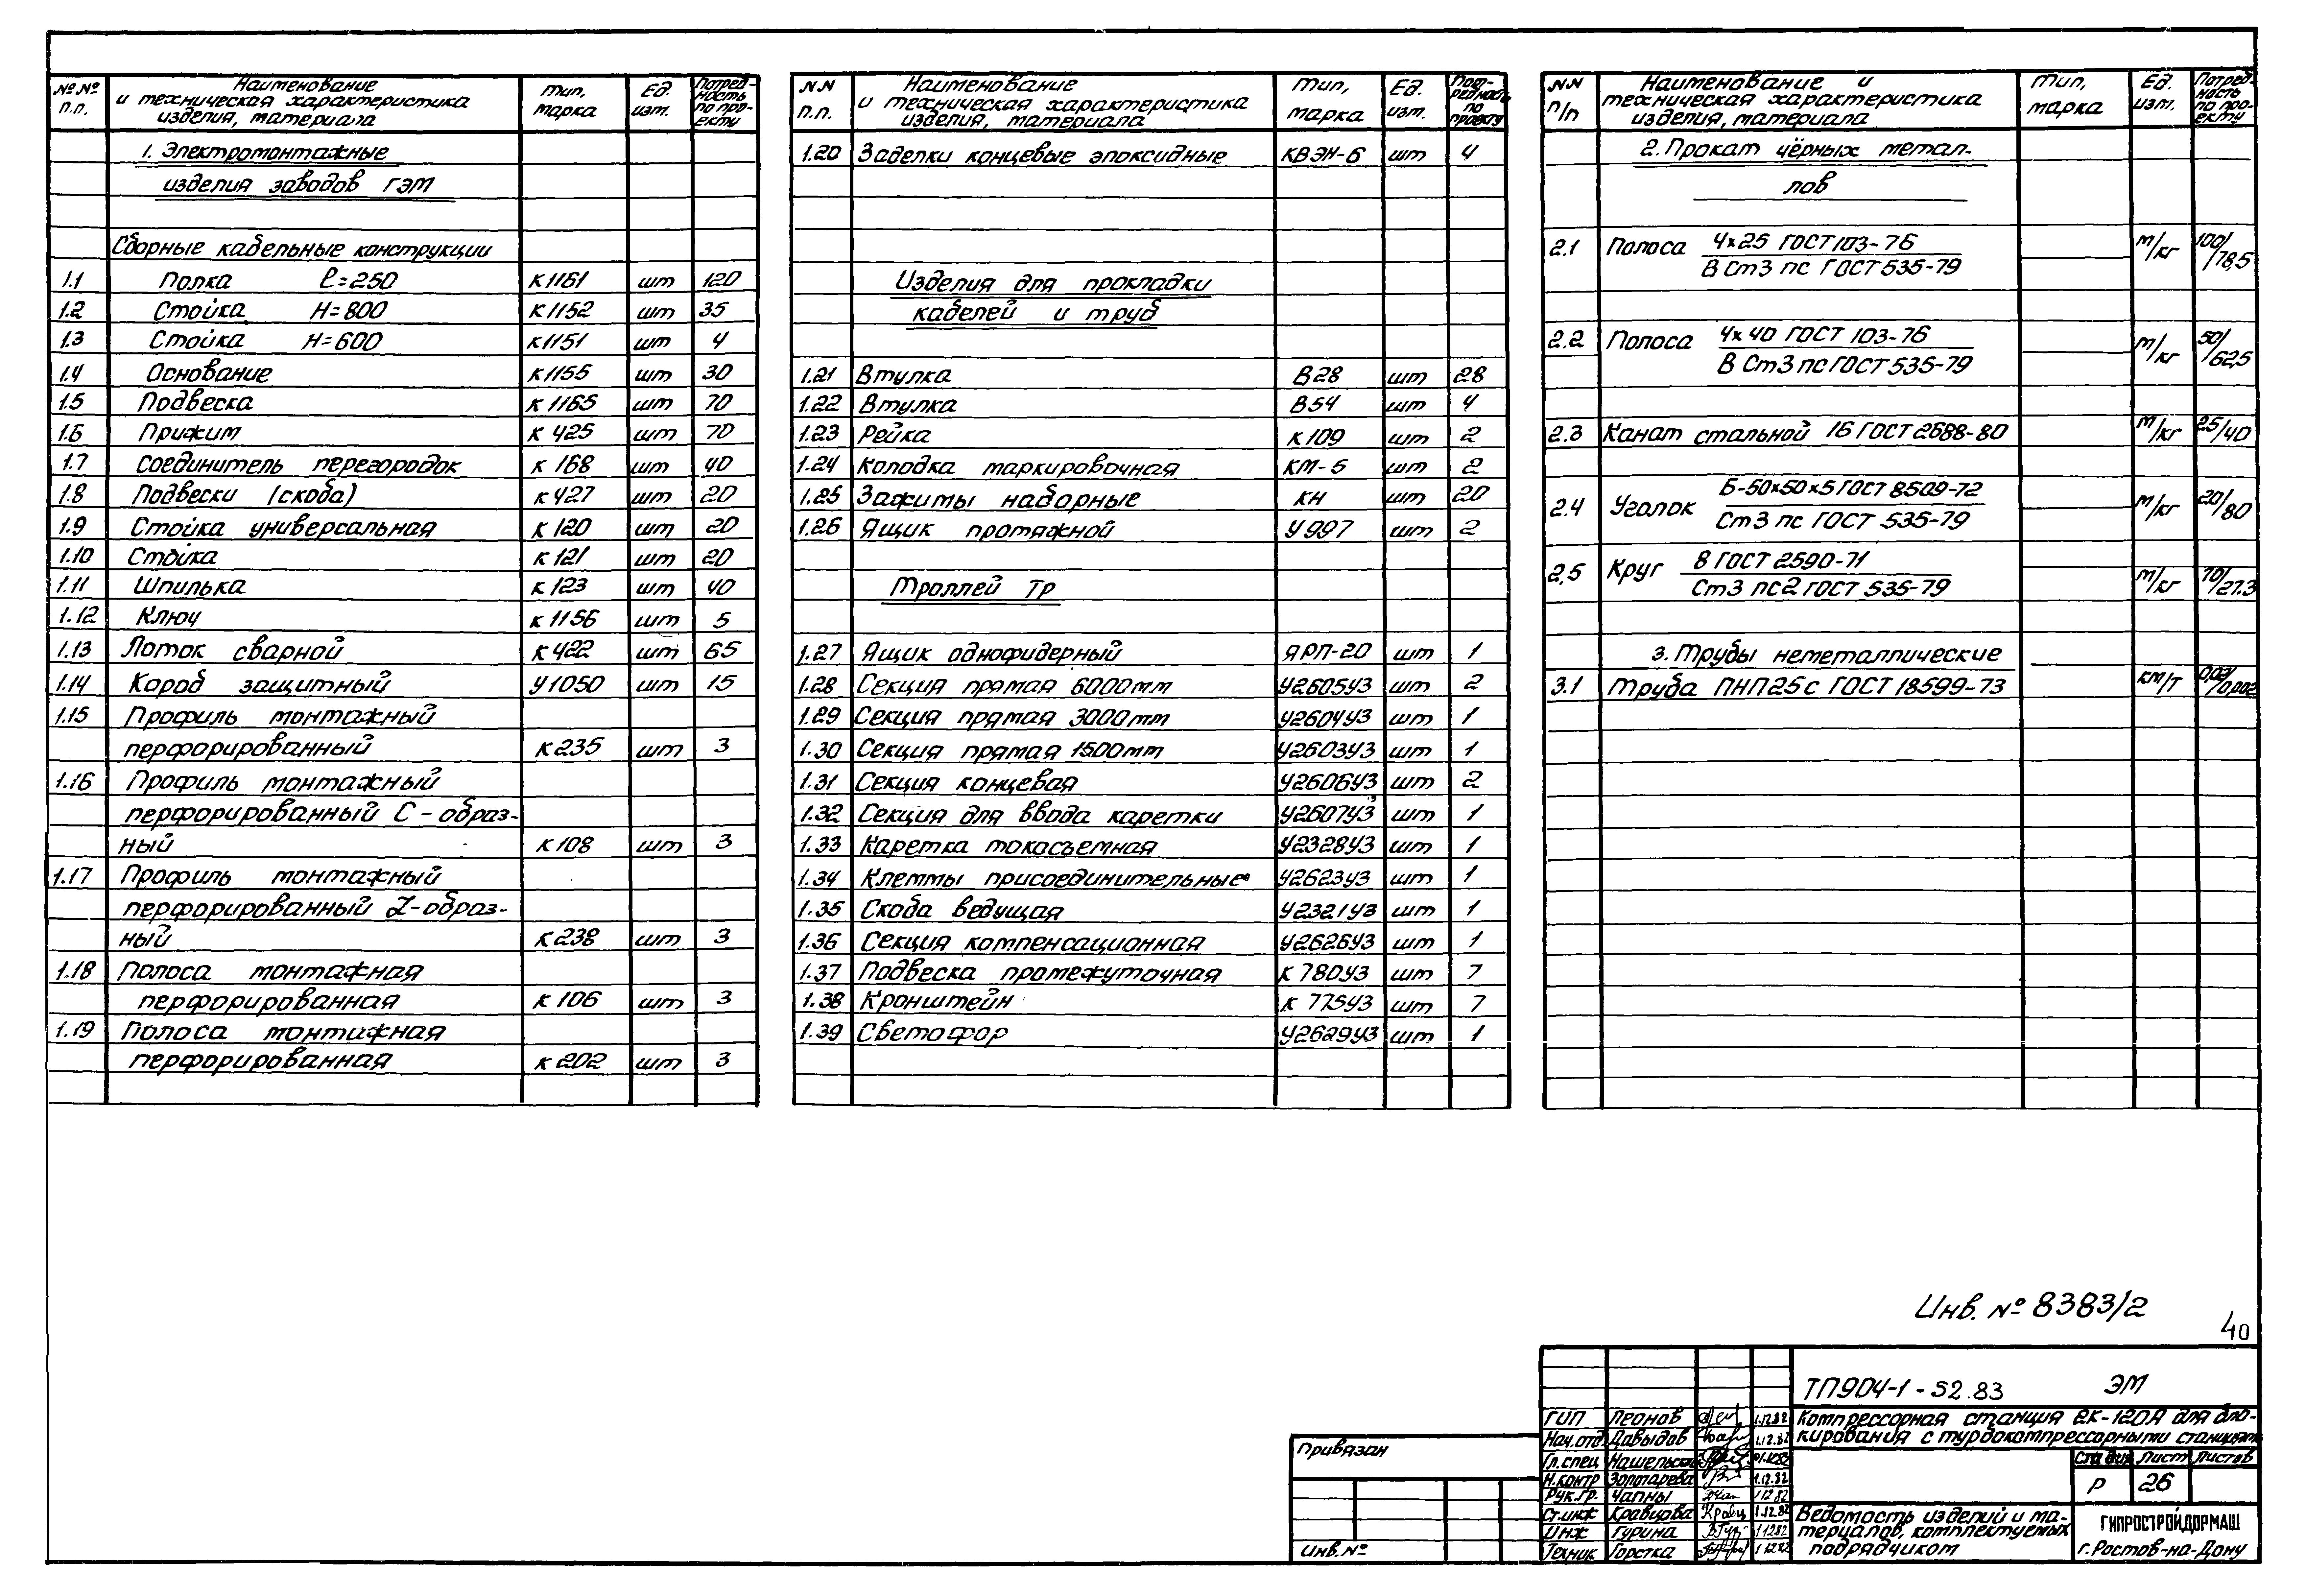 № № п.п. Наименование и техническая характеристика изделия, материала Тип, марка Ед. изм. Потреб-ность по про-екту
1. Электромонтажные
изделия заводов ГЭМ
Сборные кабельные конструкции
1.1 Полка ℓ=250 К1161 шт 120
1.2 Стойка H=800 К1152 шт 35
1.3 Стойка H=600 К1151 шт 4
1.4 Основание К1155 шт 30
1.5 Подвеска К1165 шт 70
1.6 Прижим К 425 шт 70
1.7 Соединитель перегородок К 168 шт 40
1.8 Подвески (скоба) К 427 шт 20
1.9 Стойка универсальная К 120 шт 20
1.10 Стойка К 121 шт 20
1.11 Шпилька К 123 шт 40
1.12 Ключ К 1156 шт 5
1.13 Лоток сварной К 422 шт 65
1.14 Короб защитный У1050 шт 15
1.15 Профиль монтажный
перфорированный К 235 шт 3
1.16 Профиль монтажный
перфорированный С-образ-
ный К 108 шт 3
1.17 Профиль монтажный
перфорированный Z-образ-
ный К 238 шт 3
1.18 Полоса монтажная
перфорированная К 106 шт 3
1.19 Полоса монтажная
перфорированная К 202 шт 3
N.N п.п. Наименование и техническая характеристика изделия, материала Тип, марка Ед. изм. Пот-ребность по проекту
1.20 Заделки концевые эпоксидные КВЭН-6 шт 4
Изделия для прокладки
кабелей и труб
1.21 Втулка В28 шт 28
1.22 Втулка В54 шт 4
1.23 Рейка К 109 шт 2
1.24 Колодка маркировочная КМ-5 шт 2
1.25 Зажимы наборные КН шт 20
1.26 Ящик протяжной У 997 шт 2
Троллей Тр
1.27 Ящик однофидерный ЯРП-20 шт 1
1.28 Секция прямая 6000мм У2605У3 шт 2
1.29 Секция прямая 3000мм У2604У3 шт 1
1.30 Секция прямая 1500мм У2603У3 шт 1
1.31 Секция концевая У2606У3 шт 2
1.32 Секция для ввода каретки У2607У3 шт 1
1.33 Каретка токосъемная У2328У3 шт 1
1.34 Клеммы присоединительные У2623У3 шт 1
1.35 Скоба ведущая У2321У3 шт 1
1.36 Секция компенсационная У2626У3 шт 1
1.37 Подвеска промежуточная К 780У3 шт 7
1.38 Кронштейн К 775У3 шт 7
1.39 Светофор У2629У3 шт 1
N.N п/п Наименование и техническая характеристика изделия, материала Тип, марка Ед. изм. Потреб-ность по про-екту
2. Прокат чёрных метал-
лов
2.1 Полоса 4×25 ГОСТ 103-76 м/кг 100/78,5
В Ст3 пс ГОСТ 535-79
2.2 Полоса 4×40 ГОСТ 103-76 м/кг 50/62,5
В Ст3 пс ГОСТ 535-79
2.3 Канат стальной 16 ГОСТ 2688-80 м/кг 25/40
2.4 Уголок Б-50×50×5 ГОСТ 8509-72 м/кг 20/80
Ст3 пс ГОСТ 535-79
2.5 Круг 8 ГОСТ 2590-71 м/кг 70/27.3
Ст3 пс2 ГОСТ 535-79
3. Трубы неметаллические
3.1 Труба ПНП25с ГОСТ 18599-73 км/т /0,002
Инв. № 8383/2
40
ТП904-1-52.83 ЭМ
Компрессорная станция 2К-120А для бло-
кирования с турбокомпрессорными станциями
Стадия Лист Листов
Р 26
Ведомость изделий и ма-
териалов, комплектуемых
подрядчиком
ГИПРОСТРОЙДОРМАШ
г. Ростов-на-Дону
ГИП Леонов 1.12.82
Нач.отд Давыдов 1.12.82
Гл.спец
Н.контр Золотарева 1.12.82
Рук.гр. Чапны 1.12.82
Ст.инж Кравцова 1.12.82
Инж Гурина 1.12.82
Техник Горстка 1.12.82
Привязан
Инв.№